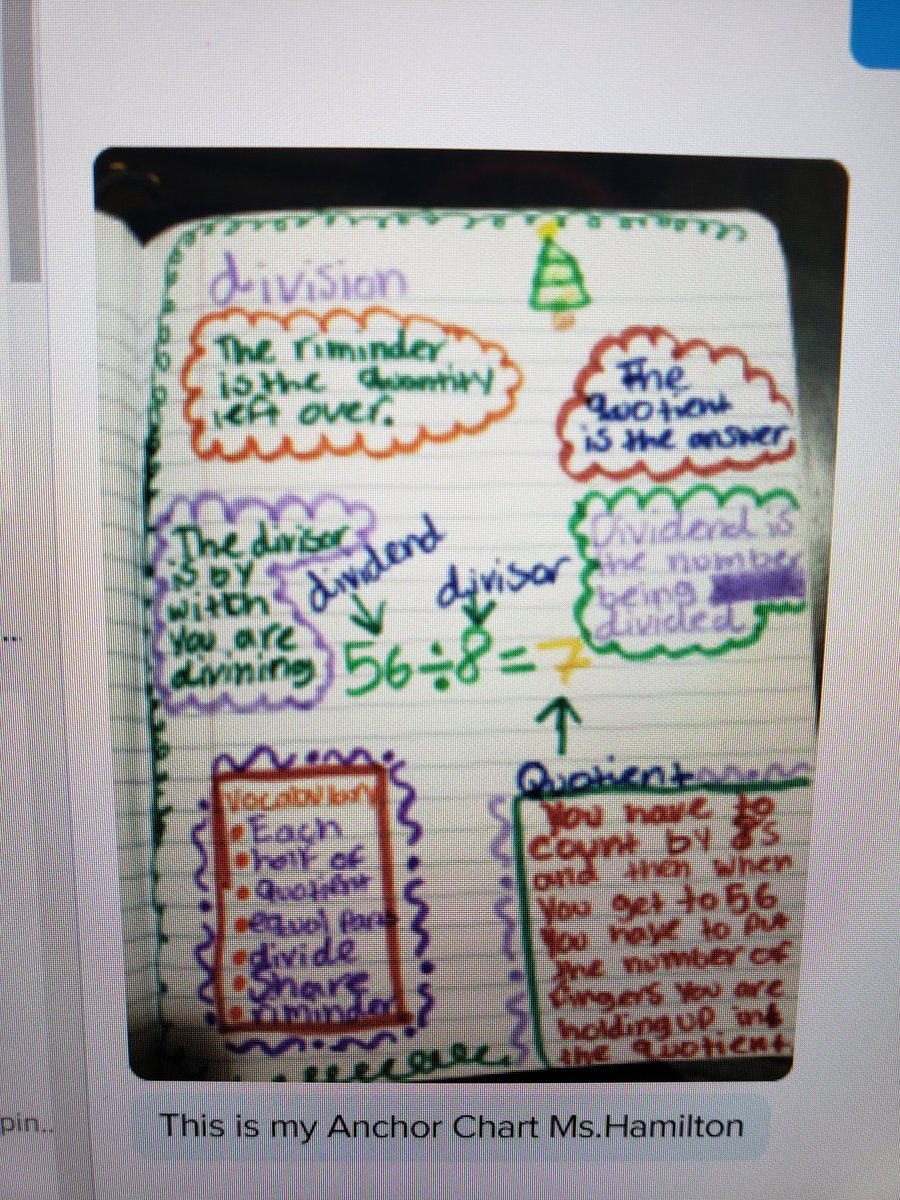 division
The riminder
is the quantity
left over.
The
quotient
is the answer
The divisor
is by
witch
you are
divining
dividend
divisor
Dividend is
the number
being
divided
56÷8=7
Quotient
Vocabulary
• Each
• half of
• quotient
• equal
• divide
• Share
• riminder
You have to
count by 8s
and then when
you get to 56
you have to put
the number of
fingers you are
holding up
the quotient
pin..
This is my Anchor Chart Ms.Hamilton